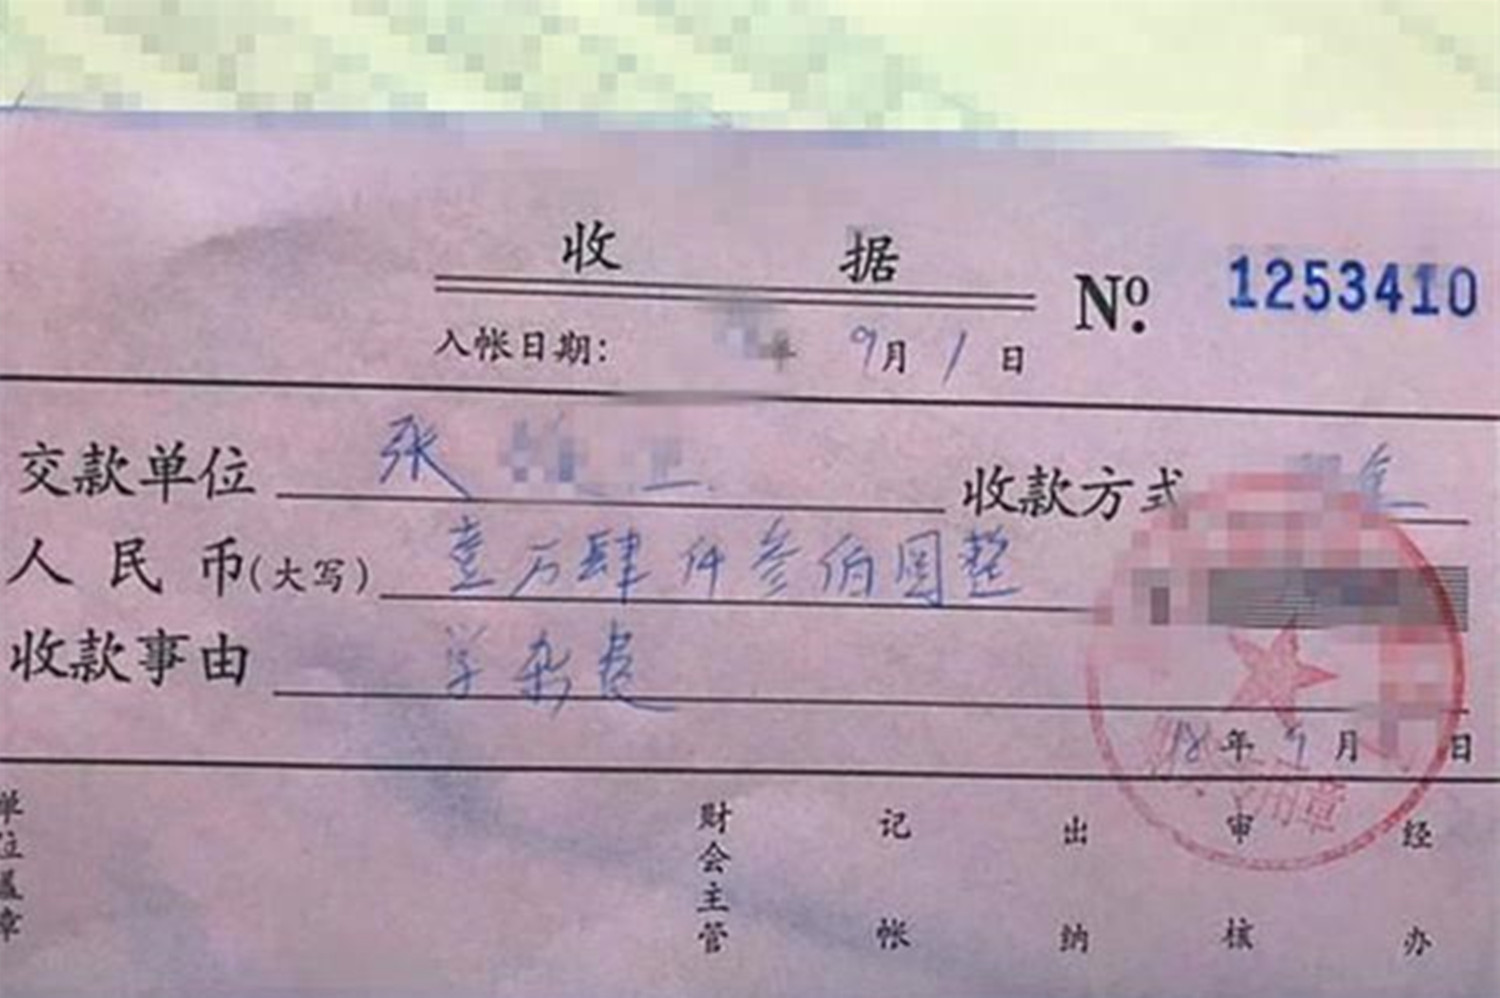 收 据
No. 1253410
入帐日期: 年 9月 1 日
交款单位 张 收款方式 金
人民币(大写) 壹万肆仟叁佰圆整
收款事由 学杂费
18年 9月 日
单位盖章 财会主管 记帐 出纳 审核 经办
用章